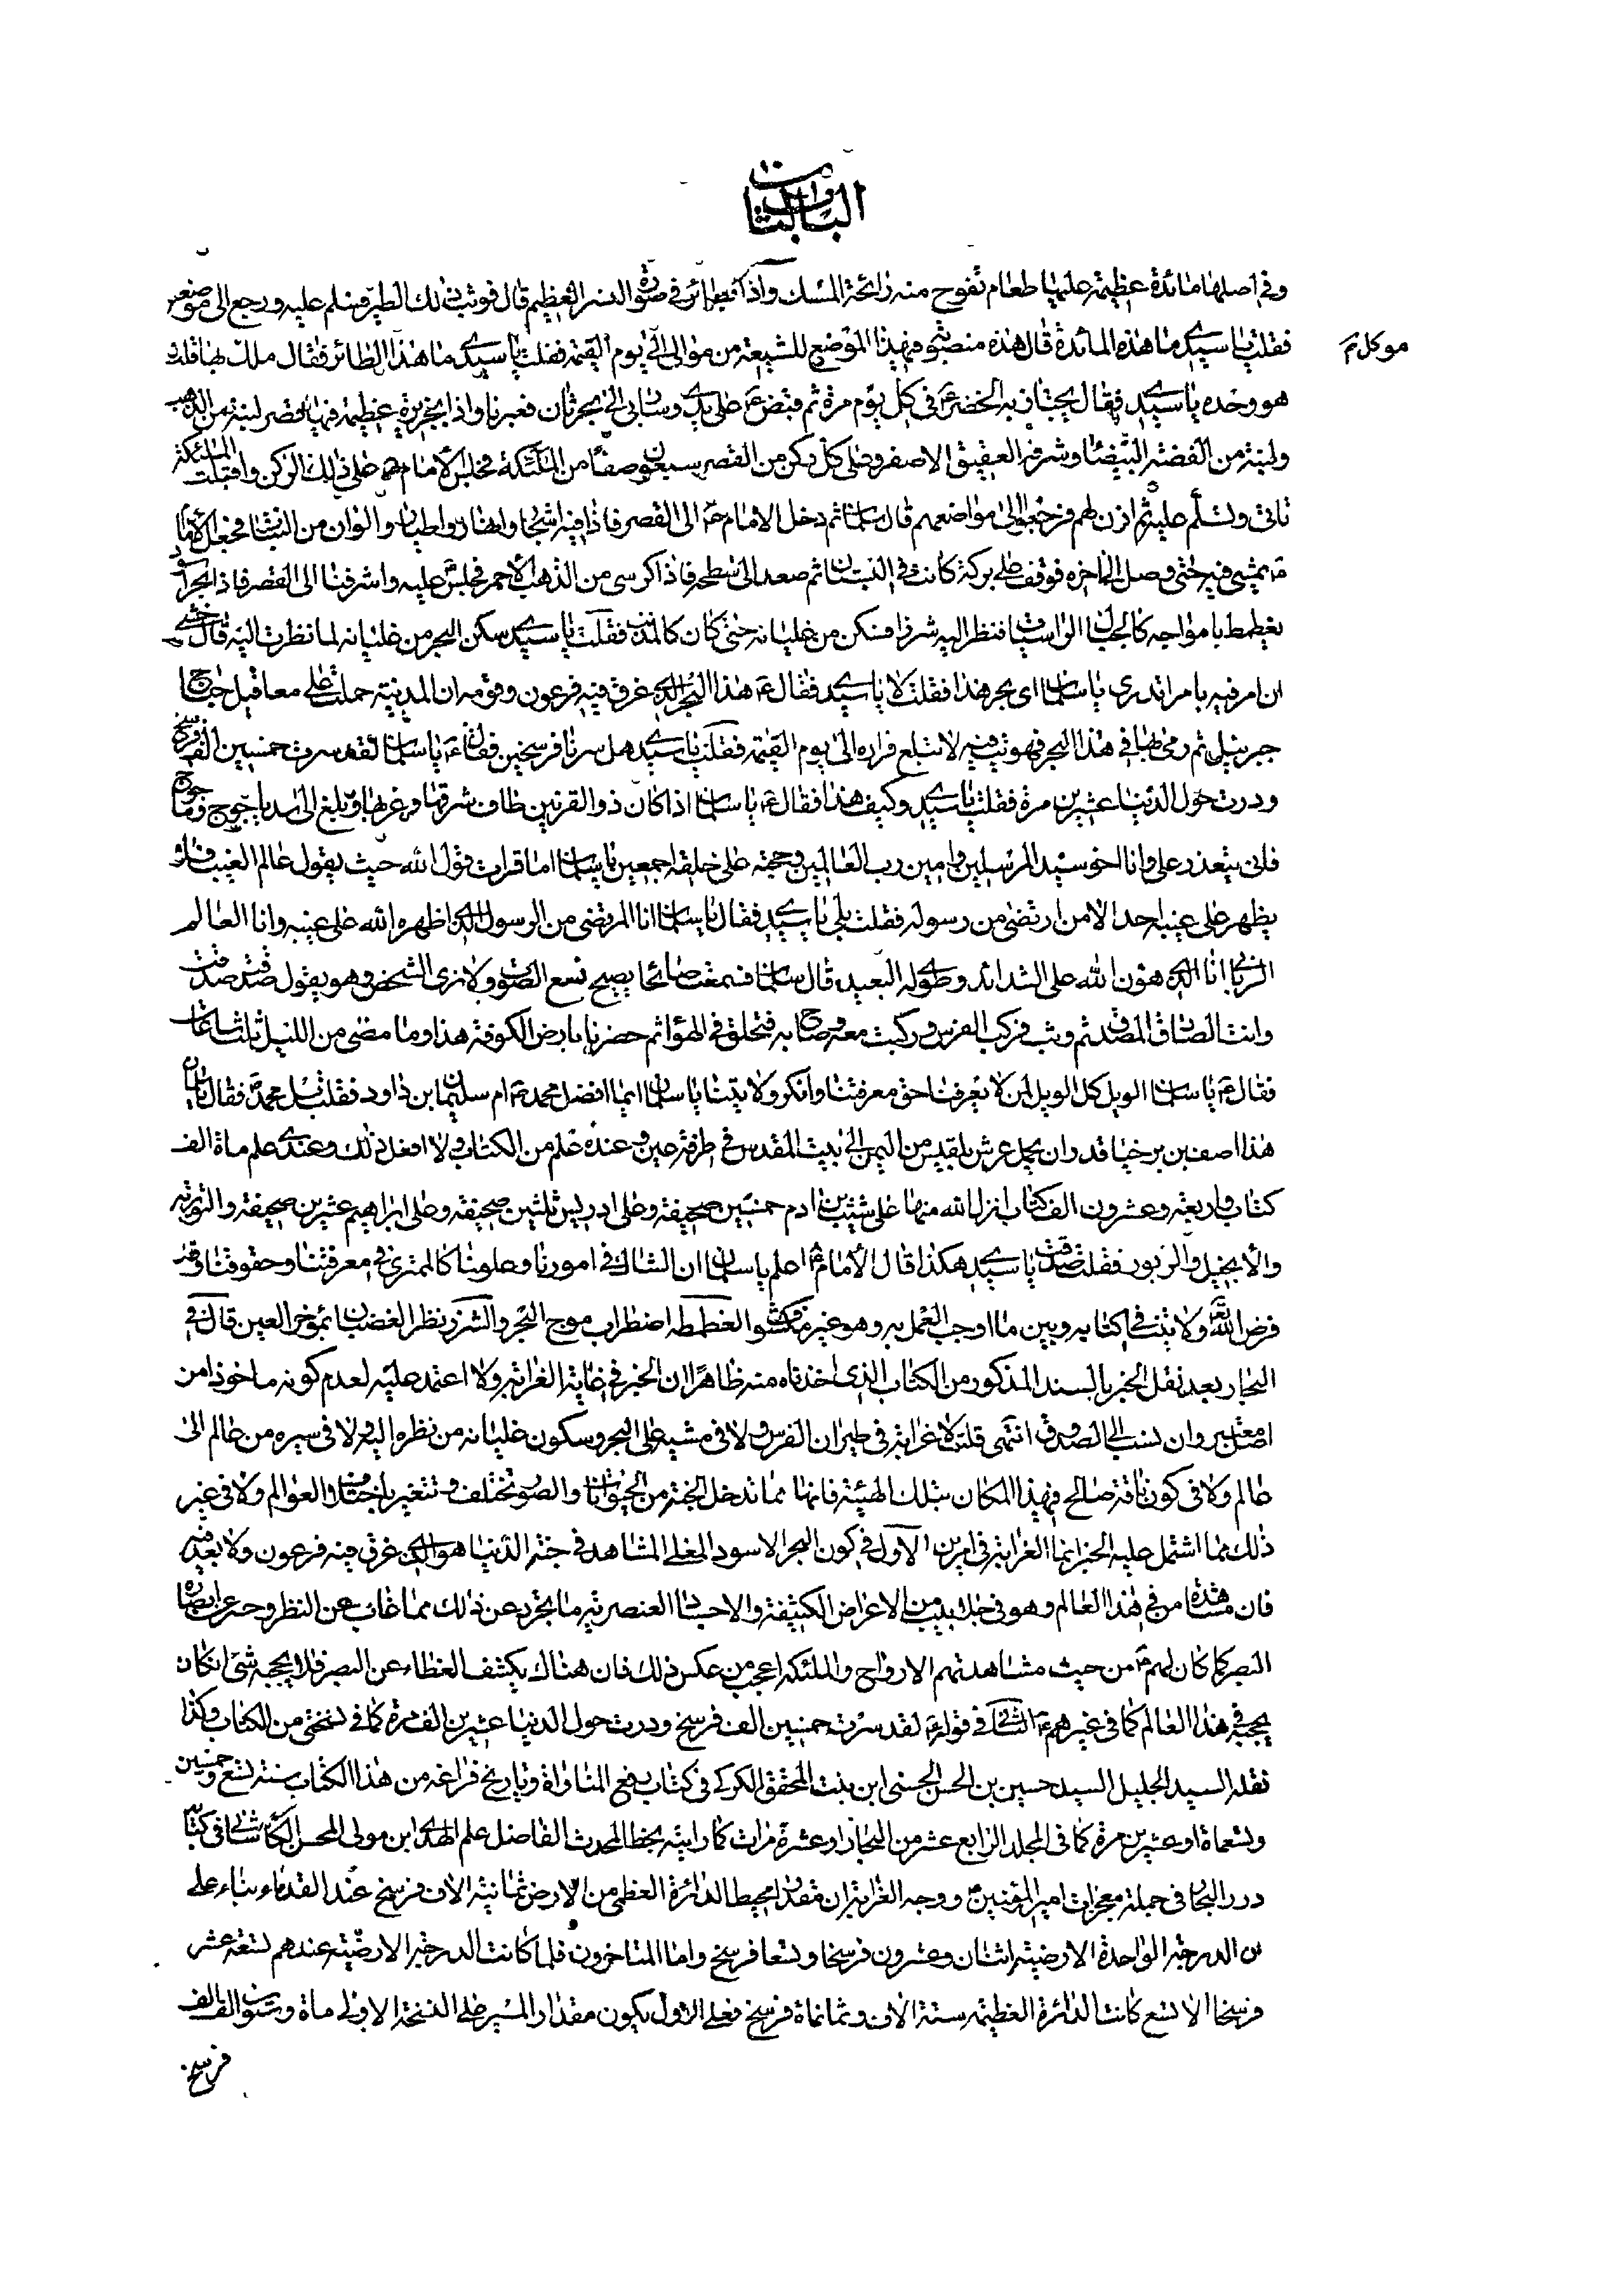 الباب الثامن
وفي اصلها مائدة عظيمة عليها طعام تفوح منه رائحة المسك واذا بطائر في صورة النسر العظيم قال فوثب ذلك الطير فسلم عليه ورجع الى موضعه
فقلت يا سيدي ما هذه المائدة قال هذه منصوبة في هذا الموضع للشيعة من موالي الى يوم القيمة فقلت يا سيدي ما هذا الطائر فقال ملك بها فقلت
موكل
هو وحده يا سيدي فقال يجتاز به الخضر ع في كل يوم مرة ثم قبض ع على يدي وسار بي الى بحر ثان فعبرنا واذا بجزيرة عظيمة فيها قصر لبنة من الذهب
ولبنة من الفضة البيضاء وشرفه العقيق الاصفر وعلى كل ركن من القصر سبعون صفا من الملئكة فجلس الامام ع على ذلك الركن واقبلت الملائكة
تاتي وتسلم عليه ثم اذن لهم فرجعوا الى مواضعهم قال سلمان ثم دخل الامام ع الى القصر فاذا فيه اشجار وانهار واطيار والوان من النبات فجعل الامام
ع يمشي فيه حتى وصل الى اخره فوقف على بركة كانت في البستان ثم صعد الى سطحه فاذا كرسي من الذهب الاحمر فجلس عليه واشرفنا الى القصر فاذا بحر اسود
يغطمط بامواجه كالجبال الراسيات فنظر اليه شزرا فسكن من غليانه حتى كان كالمذنب فقلت يا سيدي سكن البحر من غليانه لما نظرت اليه قال خشي
ان امر فيه بامر اتدري يا سلمان اي بحر هذا فقلت لا يا سيدي فقال ع هذا البحر الذي غرق فيه فرعون وقومه ان المدينة حملت على معاقيل جناح
جبرئيل ثم رمى بها في هذا البحر فهويت فيه لا تبلغ قراره الى يوم القيمة فقلت يا سيدي هل سرنا فرسخين فقال ع يا سلمان لقد سرت خمسين الف فرسخ
ودرت حول الدنيا عشرين مرة فقلت يا سيدي وكيف هذا فقال ع يا سلمان اذا كان ذو القرنين طاف شرقها وغربها وبلغ الى سد ياجوج وماجوج
فانى يتعذر علي وانا اخو سيد المرسلين وامين رب العالمين وحجته على خلقه اجمعين يا سلمان اما قرات قول الله حيث يقول عالم الغيب فلا
يظهر على غيبه احدا الا من ارتضى من رسول فقلت بلى يا سيدي فقال يا سلمان انا المرتضى من الرسول الذي اظهره الله على غيبه وانا العالم
الرباني انا الذي هون الله علي الشدائد وطوى له البعيد قال سلمان فسمعت صائحا يصيح نسمع الصوت ولا نرى الشخص وهو يقول صدقت صدقت
وانت الصادق المصدق ثم وثب فركب الفرس وركبت معه وصاح به فتحلق في الهواء ثم حضرنا بارض الكوفة هذا وما مضى من الليل ثلث ساعات
فقال ع يا سلمان الويل كل الويل لمن لا يعرفنا حق معرفتنا وانكر ولايتنا يا سلمان ايما افضل محمد ص ام سليمان ابن داود فقلت بل محمد ص فقال يا سلمان
هذا اصف بن برخيا قدر ان يحمل عرش بلقيس من اليمن الى بيت المقدس في طرفة عين وعنده علم من الكتاب ولا افعل ذلك وعندي علم ماة الف
كتاب واربعة وعشرون الف كتاب انزل الله منها على شيث بن ادم خمسين صحيفة وعلى ادريس ثلثين صحيفة وعلى ابراهيم عشرين صحيفة والتورية
والانجيل والزبور فقلت صدقت يا سيدي هكذا قال الامام ع اعلم يا سلمان ان الشاك في امورنا وعلومنا كالممتري في معرفتنا وحقوقنا وقد
فرض الله تع ولايتنا في كتابه وبين ما اوجب العمل به وهو غير مكشوف الغطمطه اضطراب موج البحر والشزر نظر الغضبان بمؤخر العين قال في
البحار بعد نقل الخبر بالسند المذكور من الكتاب الذي اخذناه منه ظاهرا ان الخبر في غاية الغرابة ولا اعتمد عليه لعدم كونه ماخوذا من
اصل معتبر وان نسب الى الصدوق انتهى قلت لا غرابة في طيران الفرس ولا في مشيه على البحر وسكون غليانه من نظره اليه ولا في سيره من عالم الى
عالم ولا في كون ناقة صالح في هذا المكان بتلك الهيئة فانها مما تدخل الجنة من الحيوانات والصور تختلف وتتغير باختلاف العوالم ولا في غير
ذلك مما اشتمل عليه الخبر انما الغرابة في امرين الاول في كون البحر الاسود المغلي المشاهد في جنة الدنيا هو الذي غرق فيه فرعون ولا بعد فيه
فان مشاهدة من في هذا العالم وهو في جلباب من الاعراض الكثيفة والاجساد العنصرية ما تجرد عن ذلك مما غاب عن النظر وحسر عن ابصاره
البصر كما كان لهم ع من حيث مشاهدتهم الارواح والملئكة اعجب من عكس ذلك فان هناك يكشف الغطاء عن البصر فلا يحجبه شئ كان
يحجبه في هذا العالم كما في غيرهم ع الثاني في قوله ع لقد سرت خمسين الف فرسخ ودرت حول الدنيا عشرين الف مرة كما في نسختي من الكتاب وكذا
نقله السيد الجليل السيد حسين بن الحسن الحسيني ابن بنت المحقق الكركي في كتاب دفع المناواة وتاريخ فراغه من هذا الكتاب سنة تسع وخمسين
وتسعماة او عشرين مرة كما في المجلد الرابع عشر من البحار او عشرة مرات كما رايته بخط المحدث الفاضل علم الهدى ابن مولى المحسن الكاشاني في كتابه
درر البحار في جملة معجزات امير المؤمنين ع ووجه الغرابة ان مقدار محيط الدائرة العظمى من الارض ثمانية الاف فرسخ عند القدماء بناء على
ان الدرجة الواحدة الارضية اثنان وعشرون فرسخا وتسعا فرسخ واما المتاخرون فلما كانت الدرجة الارضية عندهم تسعة عشر
فرسخا الا تسع كانت الدائرة العظيمة ستة الاف وثمانماة فرسخ فعلى الاول يكون مقدار المسير على النسخة الاولى ماة وستون الف الف
فرسخ